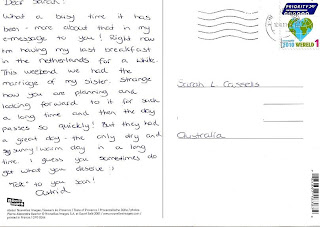 Dear Sarah!
What a busy time it has
been - more about that in my
e-message to you! Right now
I'm having my last breakfast
in the Netherlands for a while.
This weekend we had the
marriage of my sister. Strange
how you are planning and
looking forward to it for such
a long time and then the day
passes so quickly! But they had
a great day - the only dry and
sunny/warm day in a long
time. I guess you sometimes do
get what you deserve :)
"Talk" to you soon!
Astrid
PRIORITY
2010 WERELD 1
Sarah L Cassells
Australia